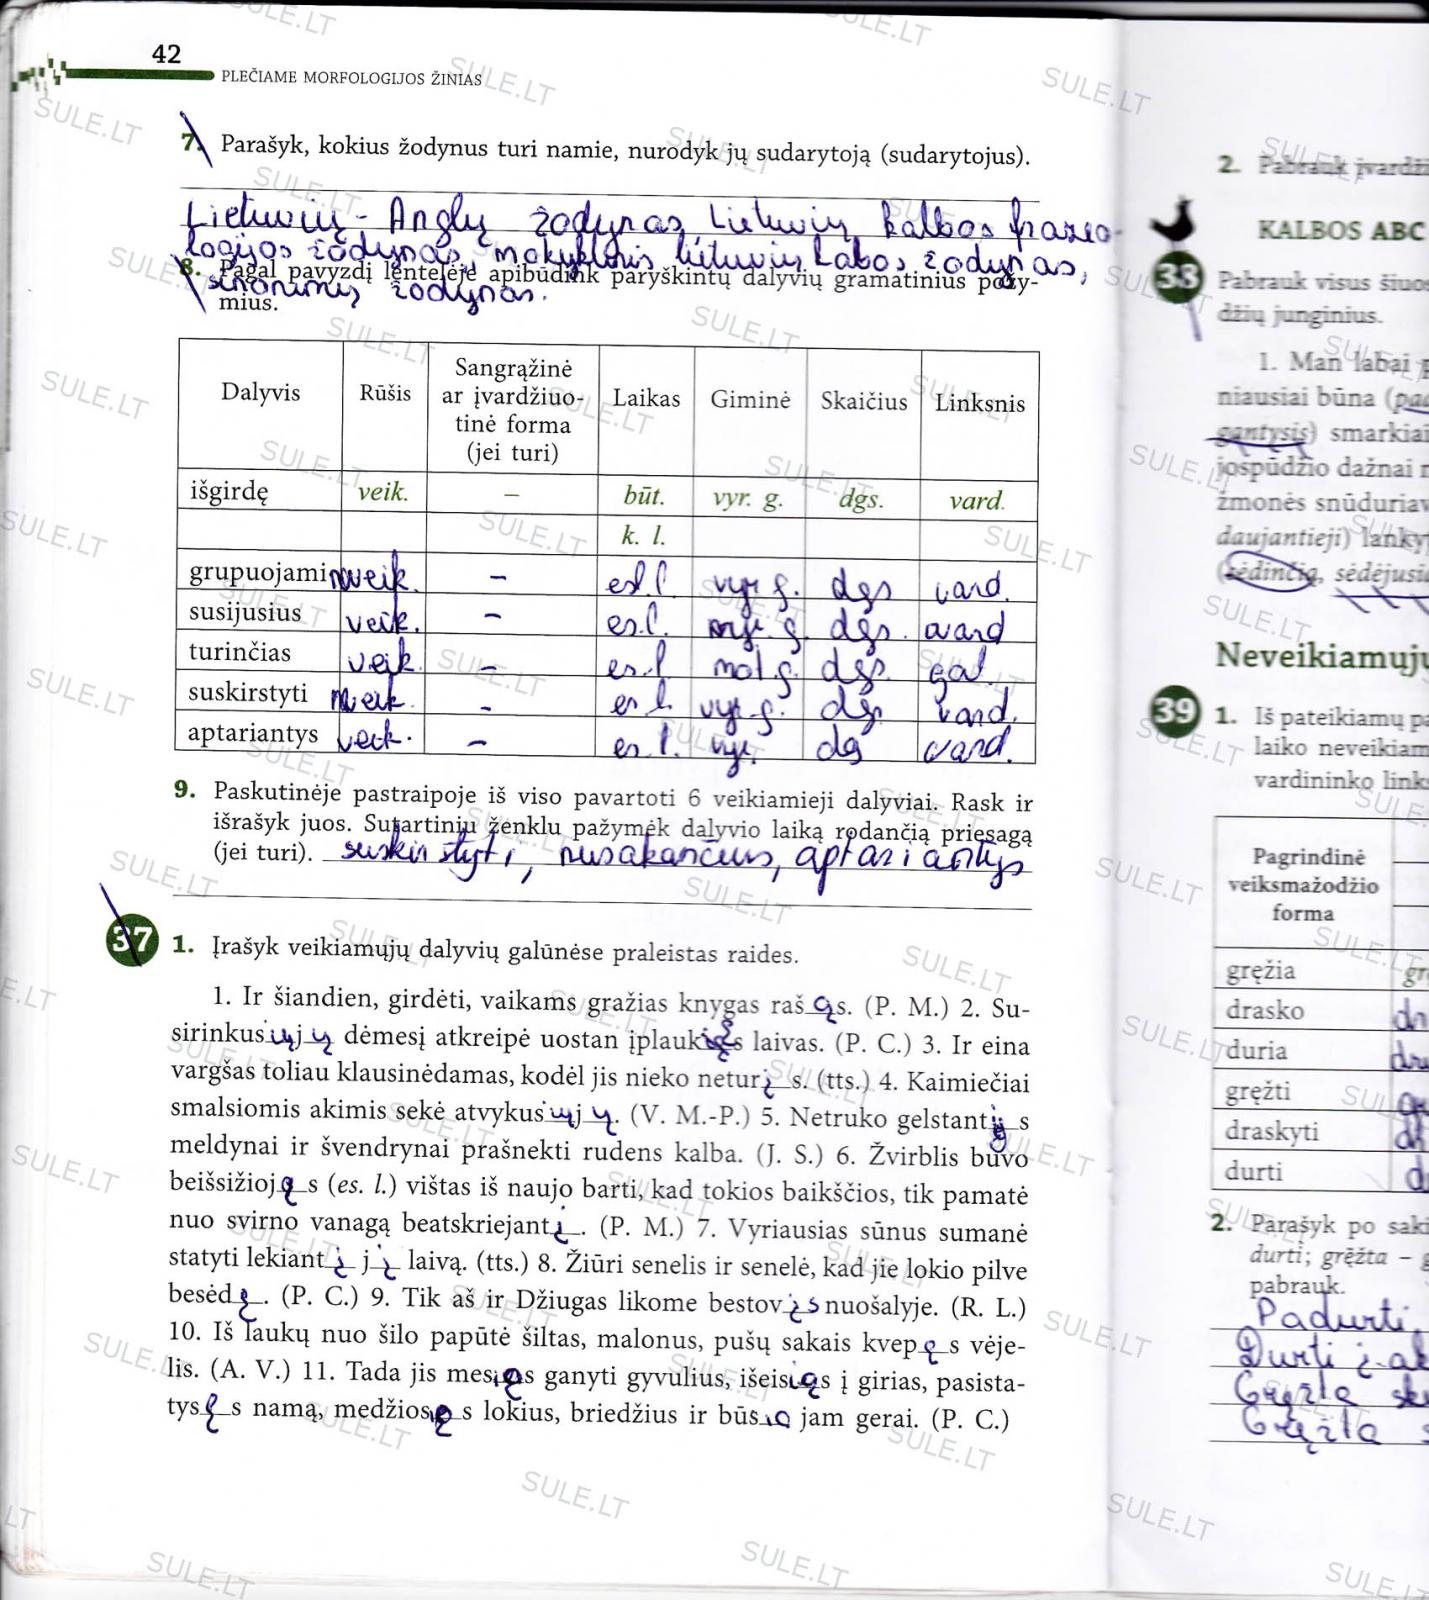 42
PLEČIAME MORFOLOGIJOS ŽINIAS
7. Parašyk, kokius žodynus turi namie, nurodyk jų sudarytoją (sudarytojus).
Lietuvių - Anglų žodynas, Lietuvių kalbos frazeo-
logijos žodynas, mokyklinis lietuvių kalbos žodynas,
8. Pagal pavyzdį lentelėje apibūdink paryškintų dalyvių gramatinius požy-
sinonimų žodynas.
mius.
Dalyvis Rūšis Sangrąžinė ar įvardžiuo-tinė forma (jei turi) Laikas Giminė Skaičius Linksnis
išgirdę veik. – būt. vyr. g. dgs. vard.
k. l.
grupuojami nveik. – es. l. vyr g. dgs vard.
susijusius veik. – es. l. vyr. g. dgs. vard
turinčias veik. – es. l mot g. dgs. gal.
suskirstyti nveik. - es l. vyr. g. dgs vard.
aptariantys veik. – es. l. vyr. dg vard.
9. Paskutinėje pastraipoje iš viso pavartoti 6 veikiamieji dalyviai. Rask ir
išrašyk juos. Sutartiniu ženklu pažymėk dalyvio laiką rodančią priesagą
(jei turi). suskirstyti, nusakančius, aptariantys
37 1. Įrašyk veikiamųjų dalyvių galūnėse praleistas raides.
1. Ir šiandien, girdėti, vaikams gražias knygas raš ąs. (P. M.) 2. Su-
sirinkusiųjų dėmesį atkreipė uostan įplaukięs laivas. (P. C.) 3. Ir eina
vargšas toliau klausinėdamas, kodėl jis nieko neturį s. (tts.) 4. Kaimiečiai
smalsiomis akimis sekė atvykusiųjų. (V. M.-P.) 5. Netruko gelstantį s
meldynai ir švendrynai prašnekti rudens kalba. (J. S.) 6. Žvirblis buvo
beišsižioją s (es. l.) vištas iš naujo barti, kad tokios baikščios, tik pamatė
nuo svirno vanagą beatskriejantį. (P. M.) 7. Vyriausias sūnus sumanė
statyti lekiantį jį laivą. (tts.) 8. Žiūri senelis ir senelė, kad jie lokio pilve
besėdę. (P. C.) 9. Tik aš ir Džiugas likome bestovįs nuošalyje. (R. L.)
10. Iš laukų nuo šilo papūtė šiltas, malonus, pušų sakais kvepęs vėje-
lis. (A. V.) 11. Tada jis mesiąs ganyti gyvulius, išeisiąs į girias, pasista-
tysęs namą, medžiosięs lokius, briedžius ir būsią jam gerai. (P. C.)
2. Pabrauk įvardži
KALBOS ABC
38 Pabrauk visus šiuos
džių junginius.
1. Man labai p
niausiai būna (pa
gantysis) smarkiai
įospūdžio dažnai n
žmonės snūduriav
daujantieji) lankyt
(sėdinčią, sėdėjusią
Neveikiamųjų
39 1. Iš pateikiamų pa
laiko neveikiam
vardininko links
Pagrindinė
veiksmažodžio
forma
gręžia gr
drasko dr
duria du
gręžti gr
draskyti dr
durti d
2. Parašyk po saki
durti; gręžta – g
pabrauk.
Padurti,
Durti į ak
Gręžta sk
Gręžta s
SULE.LT